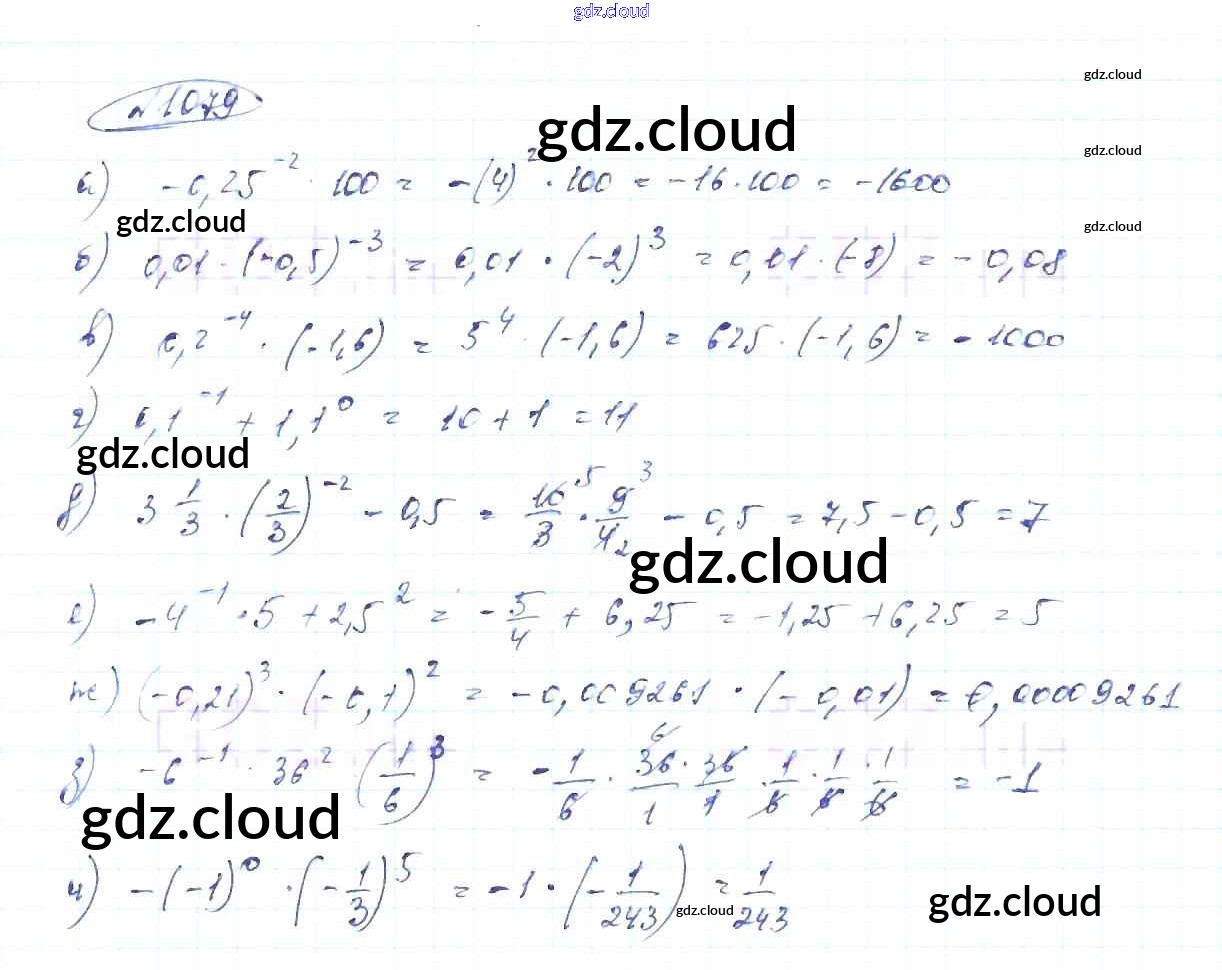 gdz.cloud
№1079
gdz.cloud
gdz.cloud
gdz.cloud
а) -0,25^-2 · 100 = -(4)^2 · 100 = -16 · 100 = -1600
gdz.cloud
gdz.cloud
б) 0,01 · (-0,5)^-3 = 0,01 · (-2)^3 = 0,01 · (-8) = -0,08
в) 0,2^-4 · (-1,6) = 5^4 · (-1,6) = 625 · (-1,6) = -1000
г) 0,1^-1 + 1,1^0 = 10 + 1 = 11
gdz.cloud
д) 3 1/3 · (2/3)^-2 - 0,5 = 10/3 ^5 · 9/4 ^3 _2 - 0,5 = 7,5 - 0,5 = 7
gdz.cloud
е) -4^-1 · 5 + 2,5^2 = -5/4 + 6,25 = -1,25 + 6,25 = 5
ж) (-0,21)^3 · (-0,1)^2 = -0,009261 · (-0,01) = 0,00009261
з) -6^-1 · 36^2 · (1/6)^3 = -1/6 · 36/1 ^6 · 36/1 · 1/6 · 1/6 · 1/6 = -1
gdz.cloud
и) -(-1)^0 · (-1/3)^5 = -1 · (-1/243) = 1/243
gdz.cloud
gdz.cloud